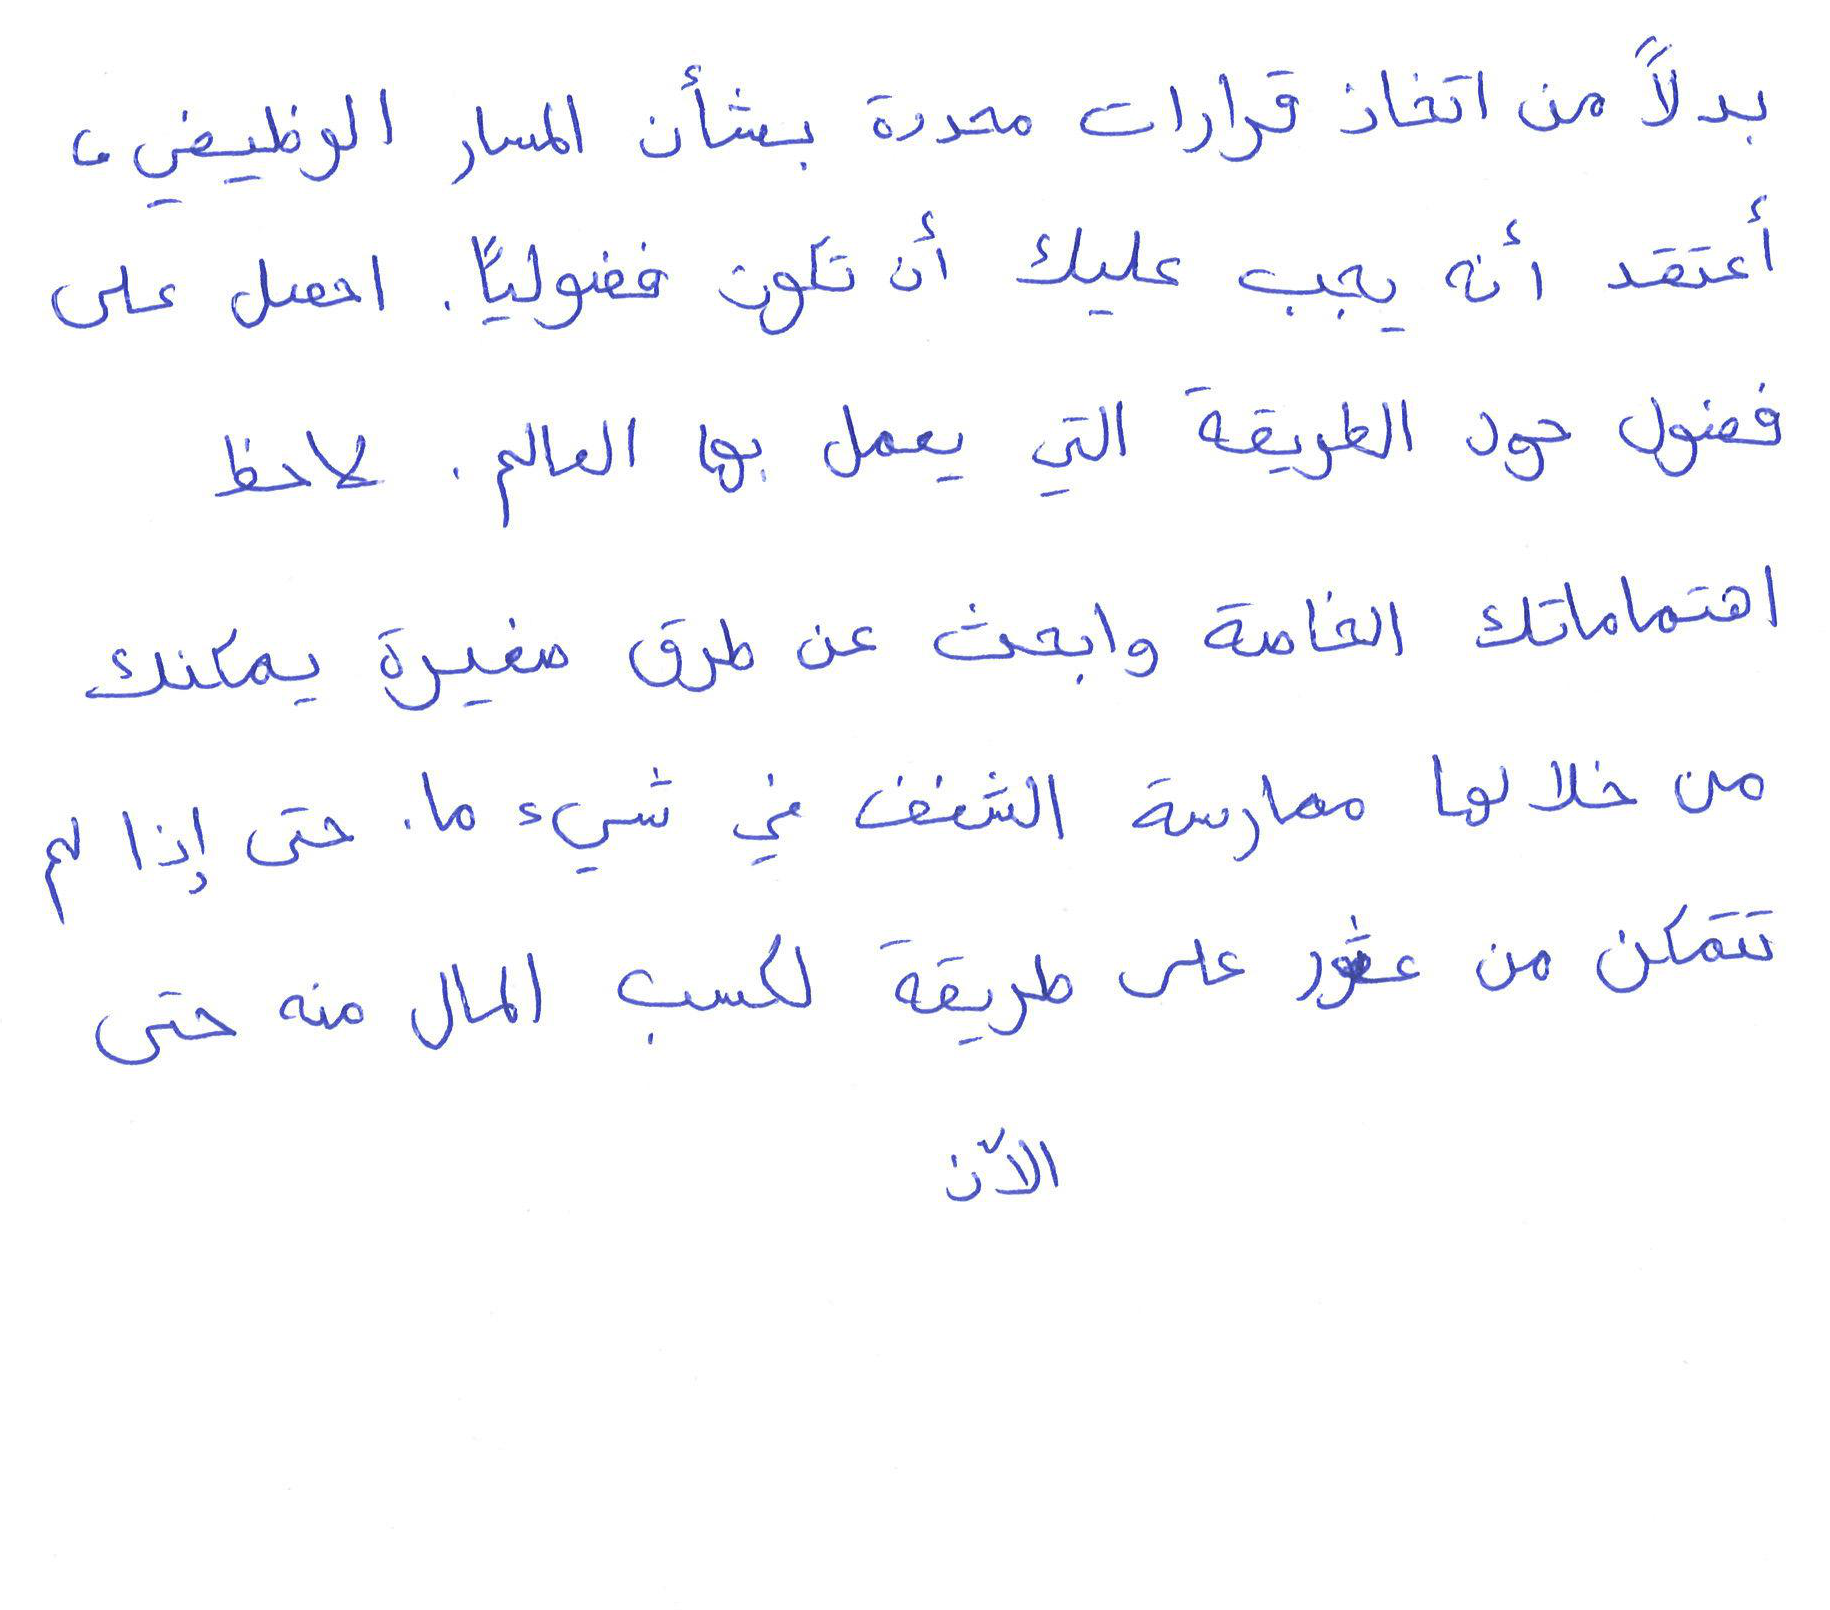 بدلاً من اتخاذ قرارات محددة بشأن المسار الوظيفي،
أعتقد أنه يجب عليك أن تكون فضولياً. احصل على
فضول حول الطريقة التي يعمل بها العالم. لاحظ
اهتماماتك الخاصة وابحث عن طرق صغيرة يمكنك
من خلالها ممارسة الشغف في شيء ما. حتى إذا لم
تتمكن من عثور على طريقة لكسب المال منه حتى
الآن